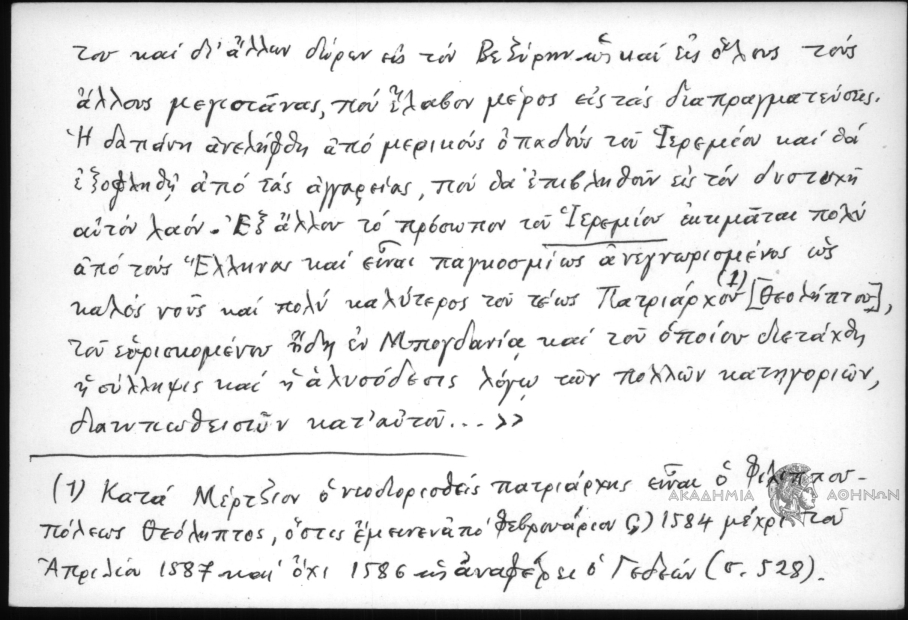 του καί δι' ἄλλων δώρων εἰς τόν Βεζύρην ὡς καί εἰς ὅλους τούς
ἄλλους μεγιστᾶνας, πού ἔλαβον μέρος εἰς τάς διαπραγματεύσεις.
Ἡ δαπάνη ἀνελήφθη ἀπό μερικούς ὀπαδούς τοῦ Ἱερεμίου καί θά
ἐξοφληθῇ ἀπό τάς ἀγγαρείας, πού θά ἐπιβληθοῦν εἰς τόν δυστυχῆ
αὐτόν λαόν. Ἐξ ἄλλου τό πρόσωπον τοῦ Ἱερεμίου ἐκτιμᾶται πολύ
ἀπό τούς Ἕλληνας καί εἶναι παγκοσμίως ἀνεγνωρισμένος ὡς
καλός νοῦς καί πολύ καλύτερος τοῦ τέως Πατριάρχου (1) [Θεολήπτου],
τοῦ εὑρισκομένου ἤδη ἐν Μπογδανίᾳ καί τοῦ ὁποίου διετάχθη
ἡ σύλληψις καί ἡ ἁλυσόδεσις λόγῳ τῶν πολλῶν κατηγοριῶν,
διατυπωθεισῶν κατ' αὐτοῦ... >>
(1) Κατά Μέρτζιον ὁ νεοδιορισθείς πατριάρχης εἶναι ὁ Φιλιππου-
πόλεως Θεόληπτος, ὅστις ἔμεινεν ἀπό Φεβρουάριον 1584 μέχρι τοῦ
Ἀπριλίου 1587 καί ὄχι 1586 ὡς ἀναφέρει ὁ Γεδεών (σ. 528).
ΑΚΑΔΗΜΙΑ ΑΘΗΝΩΝ